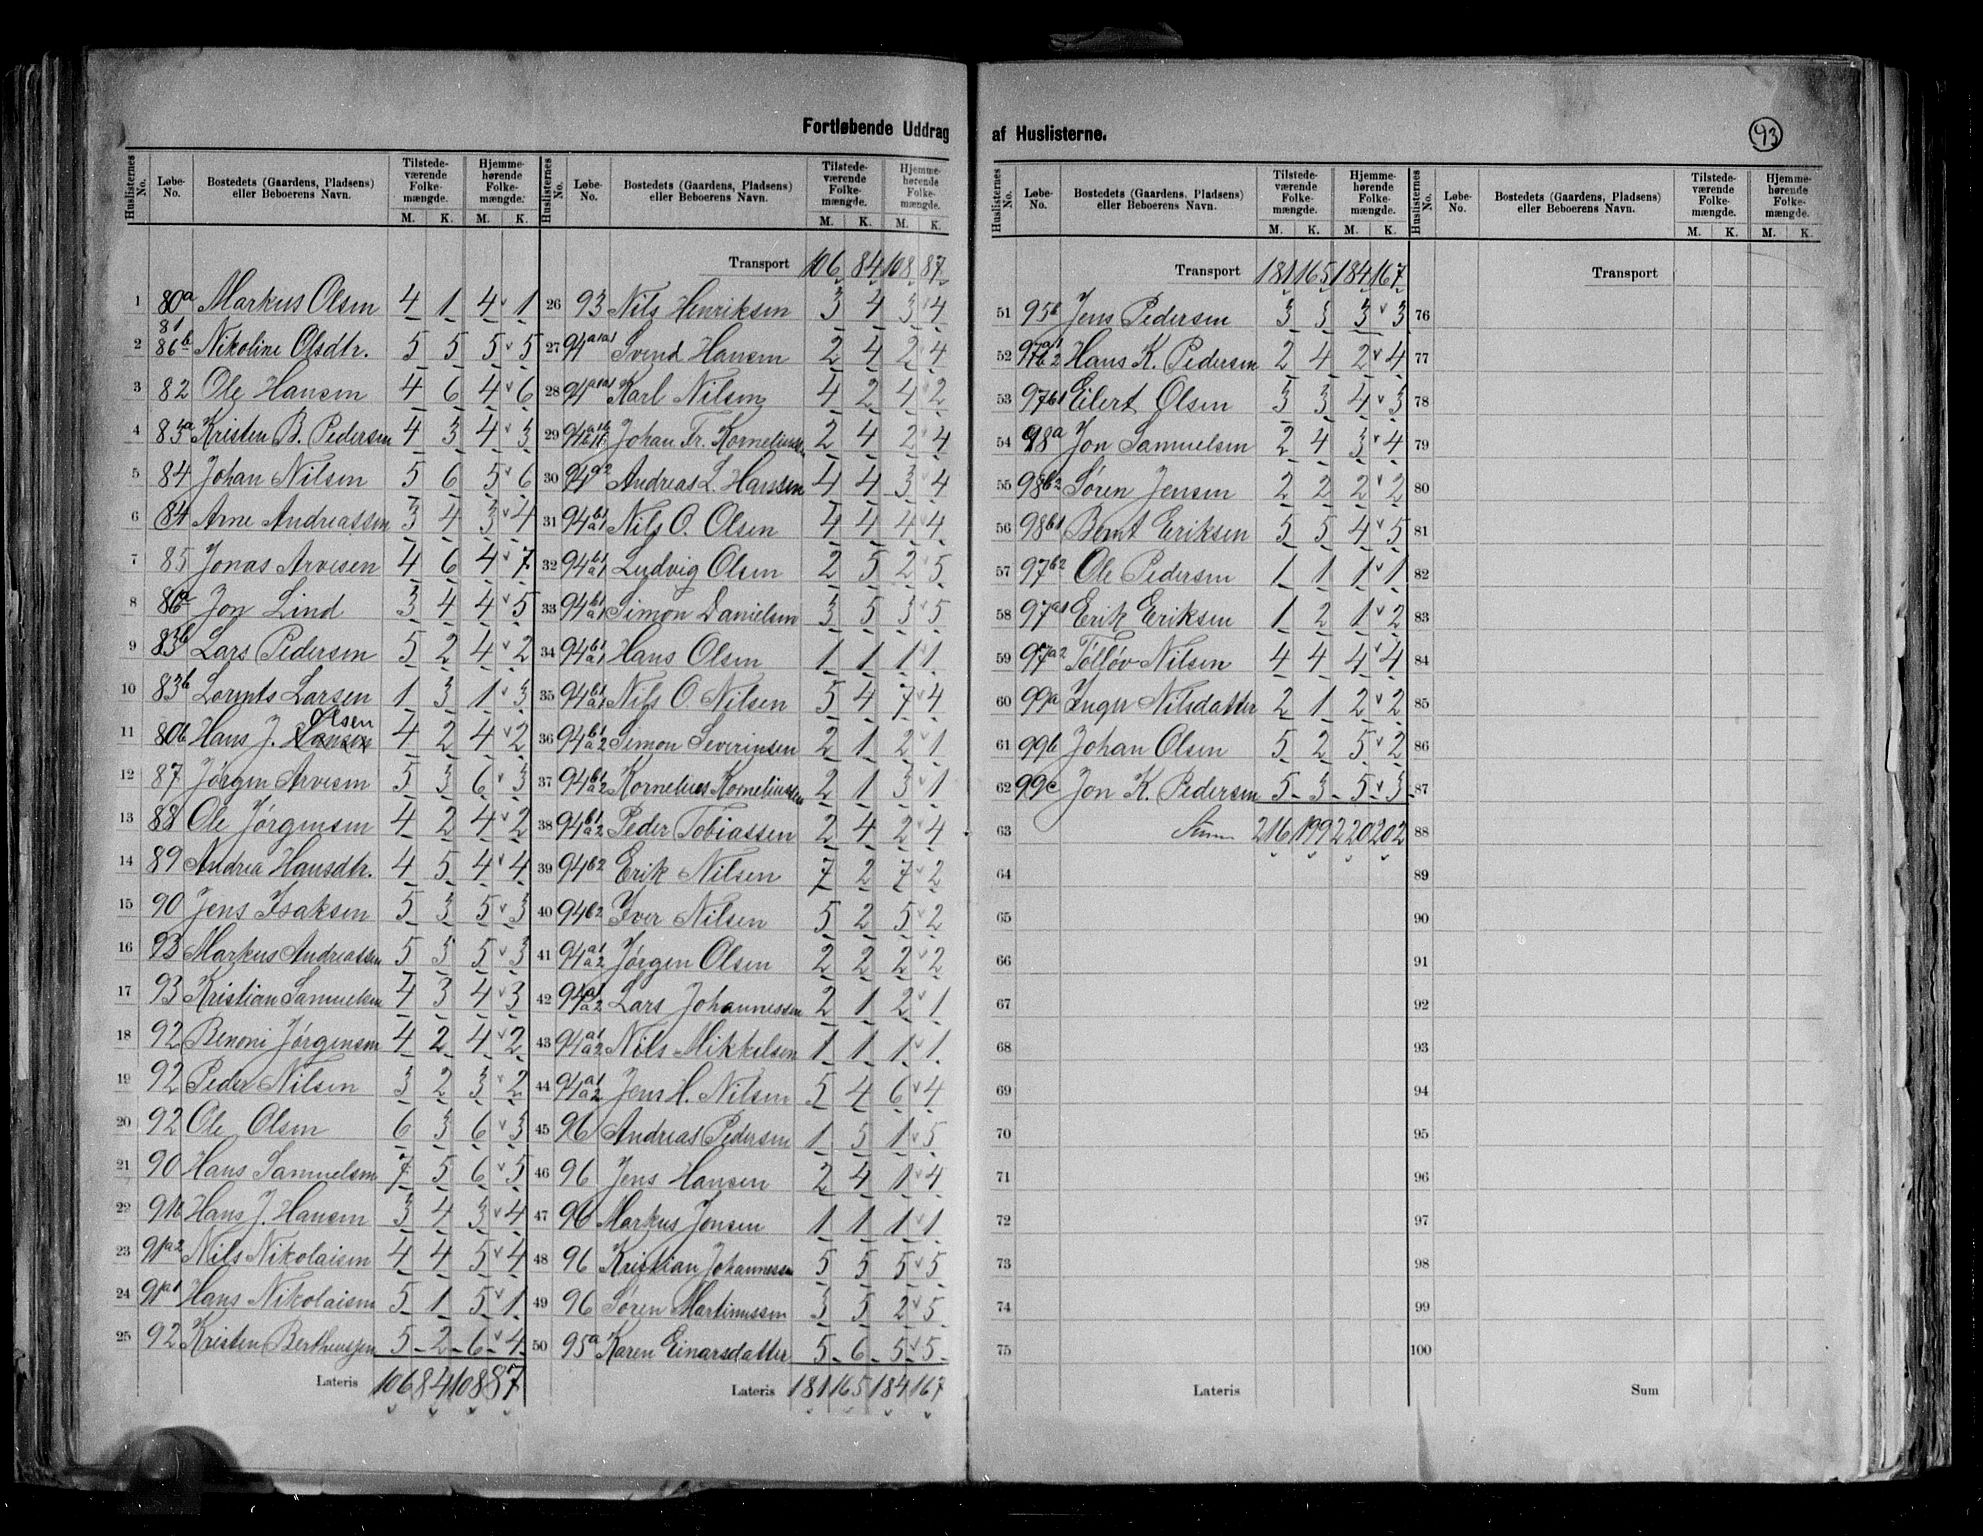 Fortløbende Uddrag af Huslisterne.
93
Huslisternes No. Løbe-No. Bostedets (Gaardens, Pladsens) eller Beboerens Navn. Tilstedeværende Folkemængde. M. K. Hjemmehørende Folkemængde. M. K.
1 80a Markus Olsen 4 1 4 1
2 81 86b Nikoline Olsdtr. 5 5 5 5
3 82 Ole Hansen 4 6 4 6
4 83a Kristen B. Pedersen 4 3 4 3
5 84 Johan Nilsen 5 6 5 6
6 84 Arne Andreassen 3 4 3 4
7 85 Jonas Arvesen 4 6 4 7
8 86a Jon Lind 3 4 4 5
9 83b Lars Pedersen 5 2 4 2
10 83b Lornts Larsen 1 3 1 3
11 80b Hans J. Olsen 4 2 4 2
12 87 Jørgen Arvesen 5 3 6 3
13 88 Ole Jørgensen 4 2 4 2
14 89 Andrea Hansdtr. 4 5 4 4
15 90 Jens Isaksen 5 3 5 3
16 93 Markus Andreassen 5 3 5 3
17 93 Kristian Samuelsen 4 3 4 3
18 92 Benoni Jørgensen 4 2 4 2
19 92 Peder Nilsen 3 2 3 2
20 92 Ole Olsen 6 3 6 3
21 90 Hans Samuelsen 7 5 6 5
22 91b Hans J. Hansen 3 4 3 4
23 91a2 Nils Nikolaisen 4 4 5 4
24 91a1 Hans Nikolaisen 5 1 5 1
25 92 Kristen Bertheussen 5 2 6 4
Lateris 106 84 108 87
Huslisternes No. Løbe-No. Bostedets (Gaardens, Pladsens) eller Beboerens Navn. Tilstedeværende Folkemængde. M. K. Hjemmehørende Folkemængde. M. K.
Transport 106 84 108 87
26 93 Nils Henriksen 3 4 3 4
27 94a1a1 Svend Hansen 2 4 2 4
28 94a1a1 Karl Nilsen 4 2 4 2
29 Johan Fr. Korneliussen 2 4 2 4
30 94a2 Andreas L. Hanssen 4 4 3 4
31 94b1a1 Nils O. Olsen 4 4 4 4
32 94b1a1 Ludvig Olsen 2 5 2 5
33 94b1a1 Simon Danielsen 3 5 3 5
34 94b1a1 Hans Olsen 1 1 1 1
35 94b1a1 Nils O. Nilsen 5 4 7 4
36 94b1a2 Simon Severinsen 2 1 2 1
37 94b1a2 Kornelius Korneliussen 2 1 3 1
38 94b1a2 Peder Tobiassen 2 4 2 4
39 94b2 Erik Nilsen 7 2 7 2
40 94b2 Iver Nilsen 5 2 5 2
41 94a1a2 Jørgen Olsen 2 2 2 2
42 94a1a2 Lars Johannessen 2 1 2 1
43 94a1a2 Nils Mikkelsen 1 1 1 1
44 94a1a2 Jens H. Nilsen 5 4 6 4
45 96 Andreas Pedersen 1 5 1 5
46 96 Jens Hansen 2 4 1 4
47 96 Markus Jonsen 1 1 1 1
48 96 Kristian Johannessen 5 5 5 5
49 96 Søren Martinussen 3 5 2 5
50 95a Karen Einarsdatter 5 6 5 5
Lateris 181 165 184 167
Huslisternes No. Løbe-No. Bostedets (Gaardens, Pladsens) eller Beboerens Navn. Tilstedeværende Folkemængde. M. K. Hjemmehørende Folkemængde. M. K.
Transport 181 165 184 167
51 95b Jens Pedersen 3 3 3 3
52 Hans K. Pedersen 2 4 2 4
53 97b1 Eilert Olsen 3 3 4 3
54 98a Jon Samuelsen 2 4 3 4
55 98b2 Søren Jensen 2 2 2 2
56 98b1 Bernt Eriksen 5 5 4 5
57 97b2 Ole Pedersen 1 1 1 1
58 97a1 Erik Eriksen 1 2 1 2
59 97a2 Tølløv Nilsen 4 4 4 4
60 99a Inger Nilsdatter 2 1 2 2
61 99b Johan Olsen 5 2 5 2
62 99c Jon K. Pedersen 5 3 5 3
63 Sum 216 199 220 202
64
65
66
67
68
69
70
71
72
73
74
75
Lateris
Huslisternes No. Løbe-No. Bostedets (Gaardens, Pladsens) eller Beboerens Navn. Tilstedeværende Folkemængde. M. K. Hjemmehørende Folkemængde. M. K.
Transport
76
77
78
79
80
81
82
83
84
85
86
87
88
89
90
91
92
93
94
95
96
97
98
99
100
Sum